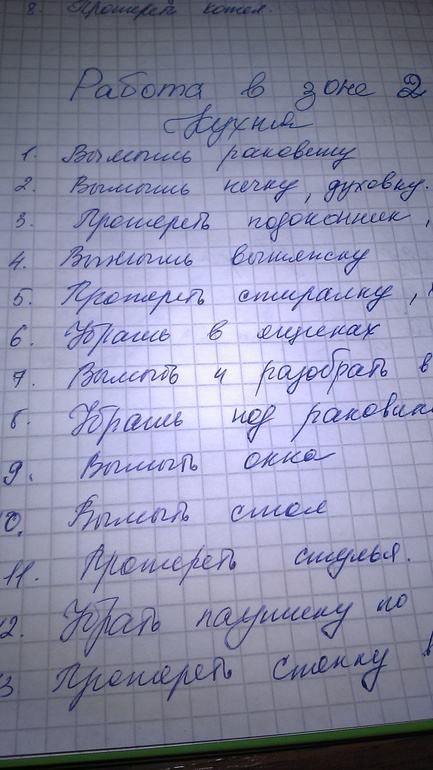 8. Протереть котел.
Работа в зоне 2
Кухня
1. Вымыть раковину
2. Вымыть печку, духовку.
3. Протереть подоконник,
4. Вымыть вытяжку
5. Протереть стиралку,
6. Убрать в ящиках
7. Вымыть и разобрать в
8. Убрать под раковин
9. Вымыть окна
10. Вымыть стол
11. Протереть стулья.
12. Убрать паутинку по
13. Протереть стенку в